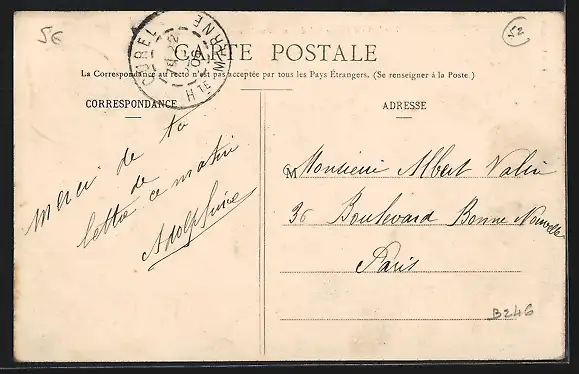 5€
52
CUREL
Hte MARNE
CARTE POSTALE
La Correspondance au recto n'est pas acceptée par tous les Pays Étrangers. (Se renseigner à la Poste.)
CORRESPONDANCE
ADRESSE
Merci de ta
lettre de
ce matin
Adolphine
M Monsieur Albert Valin
36 Boulevard Bonne Nouvelle
Paris
B246